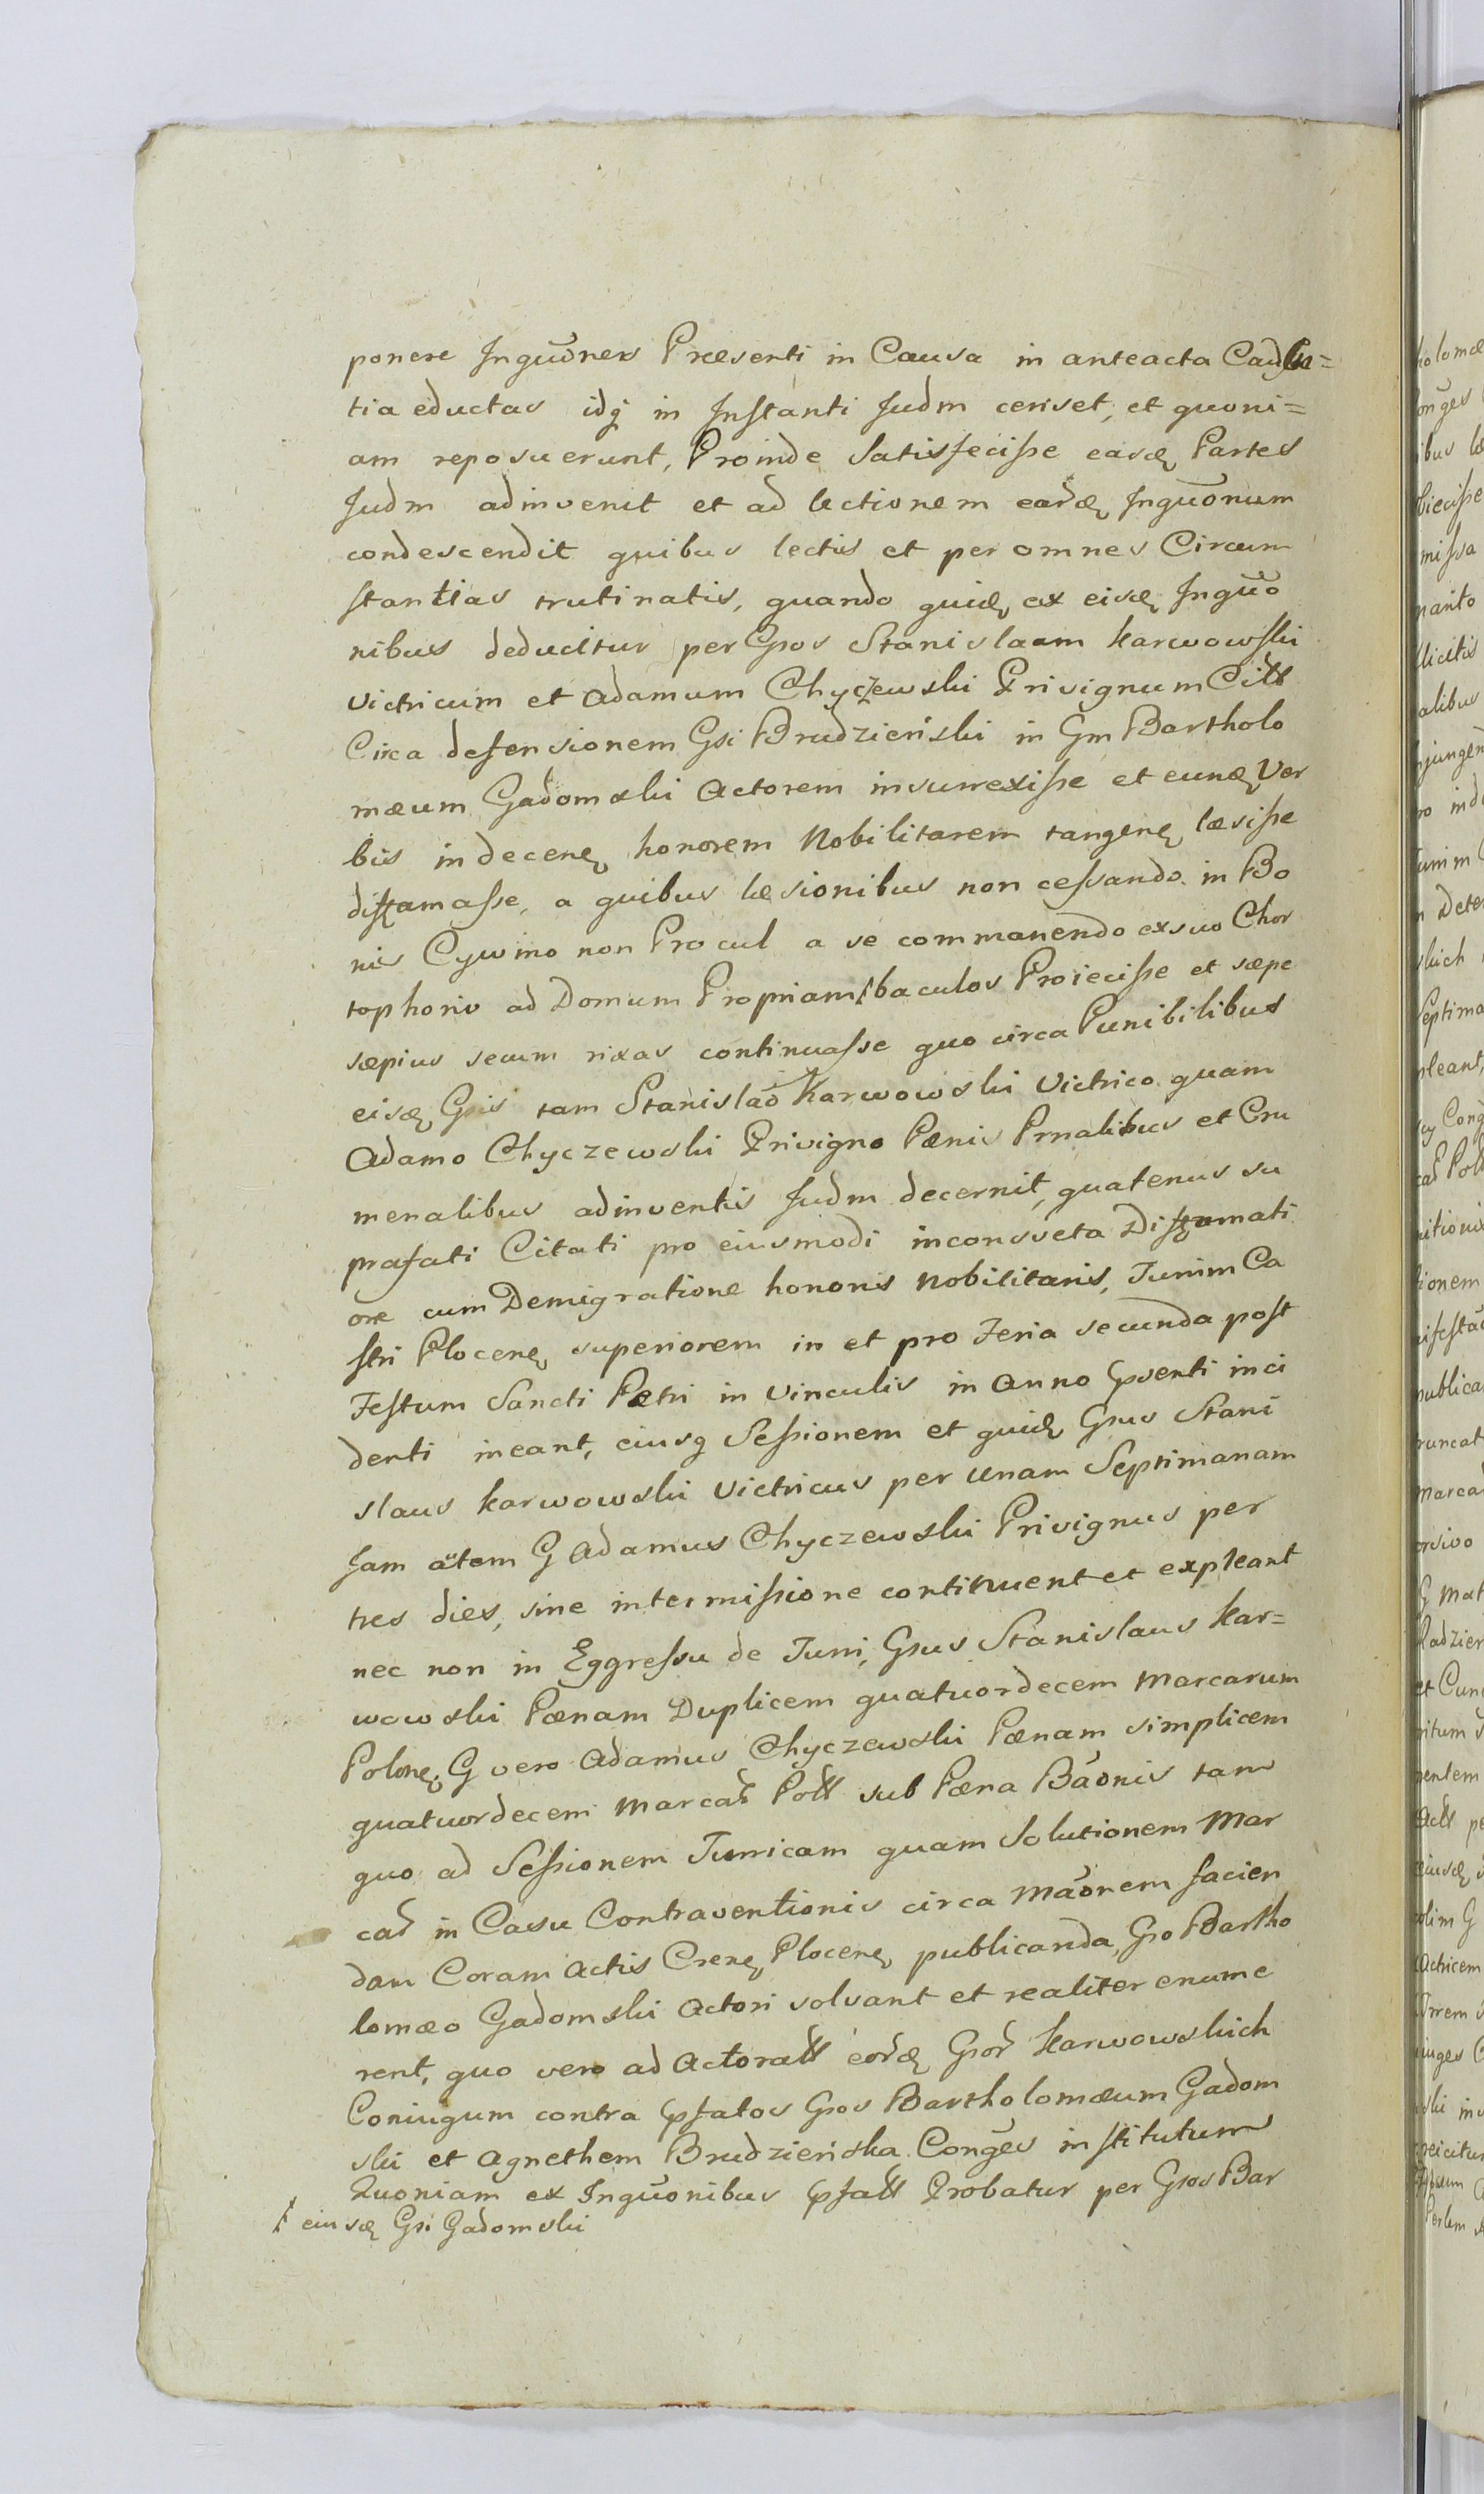 ponere Inquõnes Præsenti in Causa in anteacta Cadẽn=
tia eductas idq in Instanti Judm censet, et quoni=
am reposuerunt, Proinde Satisfecisse easd Partes
Judm adinvenit et ad lectionem eard Inquõnum
condescendit quibus lectis et per omnes Circum
stantias trutinatis, quando quid ex eisd Inquõ
nibus deducitur per Gsos Stanislaum Karwowski
Victricum et Adamum Chyczewski Privignum Citt
Circa defensionem Gsi Brudzieński in Gm Bartholo
mæum Gadomski Actorem insurrexisse et eund Ver
bis indecen honorem Nobilitarem tangen læsisse
diffamasse, a quibus læsionibus non cessando in Bo
nis Cywino non Procul a se commanendo ex suo Chor
tophorio ad Domum Propriam ƚ baculos Proiecisse et sæpe
sæpius secum rixas continuasse quo circa Punibilibus
eisd Gsis tam Stanislaõ Karwowski Victrico quam
Adamo Chyczewski Privigno Pænis Prnalibus et Cru
menalibus adinventis Judm decernit, quatenus su
prafati Citati pro eiusmodi inconsveta Diffamati
one cum Demigratione honoris Nobilitaris, Turrim Ca
stri Plocen superiorem in et pro Feria secunda post
Festum Sancti Petri in Vinculis in Anno Pnsenti inci
denti ineant, eiusq Sessionem et quid Gsus Stani
slaus Karwowski Victricus per Unam Septimanam
Jam ãtem G Adamus Chyczewski Privignus per
tres dies, sine intermissione continuent et expleant
nec non in Eggressu de Turri, Gsus Stanislaus Kar=
wowski Pænam Duplicem quatuordecem Marcarum
Polon, G vero Adamus Chyczewski Pænam simplicem
quatuordecem Marcar Poll sub Pæna Bãonis tam
quo ad Sessionem Turricam quam Solutionem Mar
car in Casu Contraventionis circa Mãonem facien
dam Coram Actis Cren Plocen publicanda, Gso Bartho
lomæo Gadomski Actori solvant et realiter enume
rent, quo vero ad Actoratt eord Gsor Karwowskich
Coniugum contra Pfatos Gsos Bartholomæum Gadom
ski et Agnethem Brudzieńska Conges institutum
Quoniam ex Inquõnibus Pfatt Probatur per Gsos Bar
ƚ eiusd Gsi Gadomski